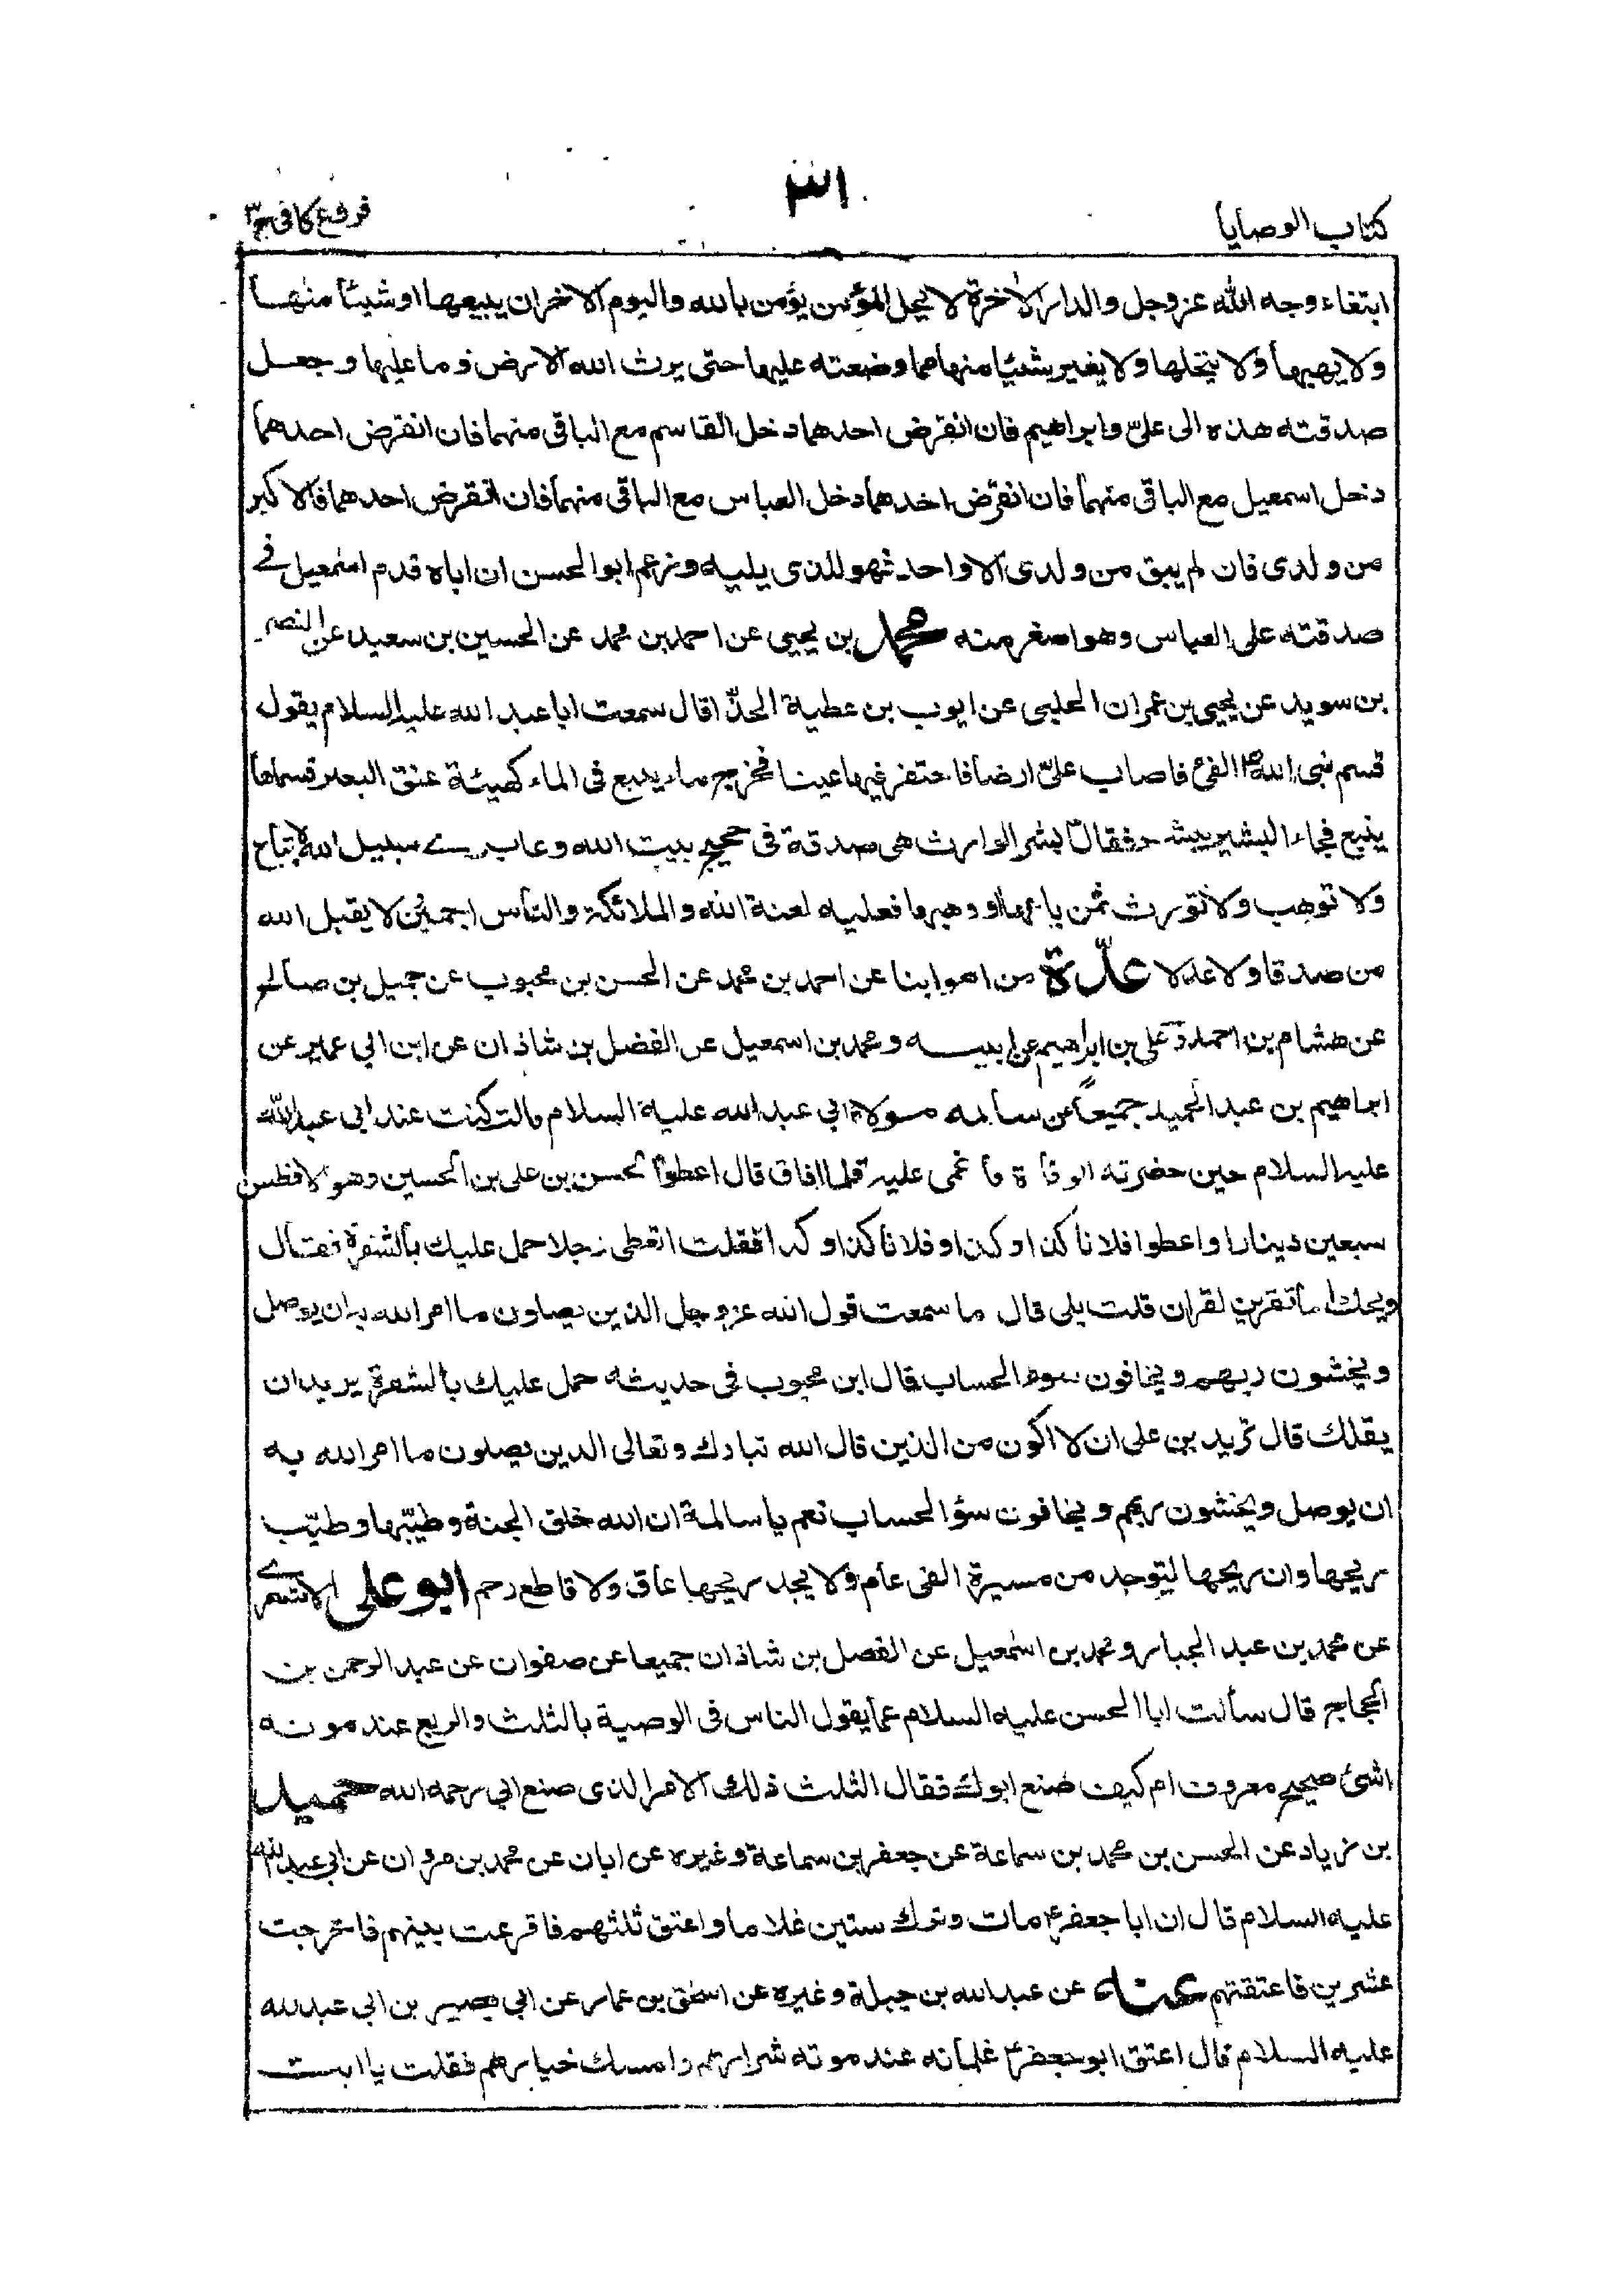 كتاب الوصايا
٣١
فروع كافى ج٣
ابتغاء وجه الله عز وجل والدار الاخرة لا يحل لمؤمن يؤمن بالله واليوم الاخران يبيعها او شيئا منها
ولا يهبها ولا ينحلها ولا يغير شيئا منها مما وضعته عليها حتى يرث الله الارض وما عليها وجعل
صدقته هذه الى علىّ وابراهيم فان انقرض احدهما دخل القاسم مع الباقى منهما فان انقرض احدهما
دخل اسمعيل مع الباقى منهما فان انقرض احدهما دخل العباس مع الباقى منهما فان انقرض احدهما فالاكبر
من ولدى فان لم يبق من ولدى الا واحد فهو للذى يليه وزعم ابو الحسن ان اباه قدم اسمعيل فى
صدقته على العباس وهو اصغر منه محمد بن يحيى عن احمد بن محمد عن الحسين بن سعيد عن النضر
بن سويد عن يحيى بن عمران الحلبى عن ايوب بن عطية الحذّا قال سمعت ابا عبد الله عليه السلام يقول
قسم نبى الله ص الفئ فاصاب علىّ ارضا فاحتفر فيها عينا فخرج ماء ينبع فى الماء كهيئة عنق البعير فسماها
ينبع فجاء البشير يبشر فقال بشر الوارث هى صدقة فى حجيج بيت الله وعابرى سبيل الله لا تباع
ولا توهب ولا تورث فمن باعها او وهبها فعليه لعنة الله والملائكة والناس اجمعين لا يقبل الله
من صدقا ولا عدلا عدّة من اصحابنا عن احمد بن محمد عن الحسن بن محبوب عن جميل بن صالح
عن هشام بن احمد وعلى بن ابراهيم عن ابيه ومحمد بن اسمعيل عن الفضل بن شاذان عن ابن ابي عمير عن
ابراهيم بن عبد الحميد جميعاً عن سالمه مولاة ابي عبد الله عليه السلام قالت كنت عند ابى عبد الله
عليه السلام حين حضرته الوفاة فاغمى عليه فلما افاق قال اعطوا الحسن بن على بن الحسين وهو الافطس
سبعين دينارا واعطوا فلانا كذا وكذا وفلانا كذا وكذا فقلت اتعطى رجلا حمل عليك بالشفرة فقال
ويحك اما تقرين لقران قلت بلى قال ما سمعت قول الله عز وجل الذين يصلون ما امر الله به ان يوصل
ويخشون ربهم ويخافون سوء الحساب قال ابن محبوب فى حديثه حمل عليك بالشفرة يريد ان
يقتلك قال تريدين على ان لا اكون من الذين قال الله تبارك وتعالى الذين يصلون ما امر الله به
ان يوصل ويخشون ربهم ويخافون سؤ الحساب نعم يا سالمة ان الله خلق الجنة وطيّبها وطيّب
ريحها وان ريحها ليتوجد من مسيرة الفى عام ولا يجد ريحها عاق ولا قاطع رحم ابو على الاشعرى
عن محمد بن عبد الجبار ومحمد بن اسمعيل عن الفضل بن شاذان جميعا عن صفوان عن عبد الرحمن بن
الحجاج قال سألت ابا الحسن عليه السلام عما يقول الناس فى الوصية بالثلث والربع عند موته
اشئ صحيح معروف ام كيف صنع ابوك فقال الثلث ذلك الامر الذى صنع ابي رحمه الله حميد
بن زياد عن الحسن بن محمد بن سماعة عن جعفر بن سماعة وغيره عن ابان عن محمد بن مروان عن ابى عبد الله
عليه السلام قال ان ابا جعفر ع مات وترك ستين غلاما واعتق ثلثهم فاقرعت بينهم فاخرجت
عشرين فاعتقتهم عنه عن عبد الله بن جبلة وغيره عن اسحق بن عمار عن ابي بصير بن ابى عبد الله
عليه السلام قال اعتق ابو جعفر ع غلمانه عند موته شرارهم وامسك خيارهم فقلت يا ابت